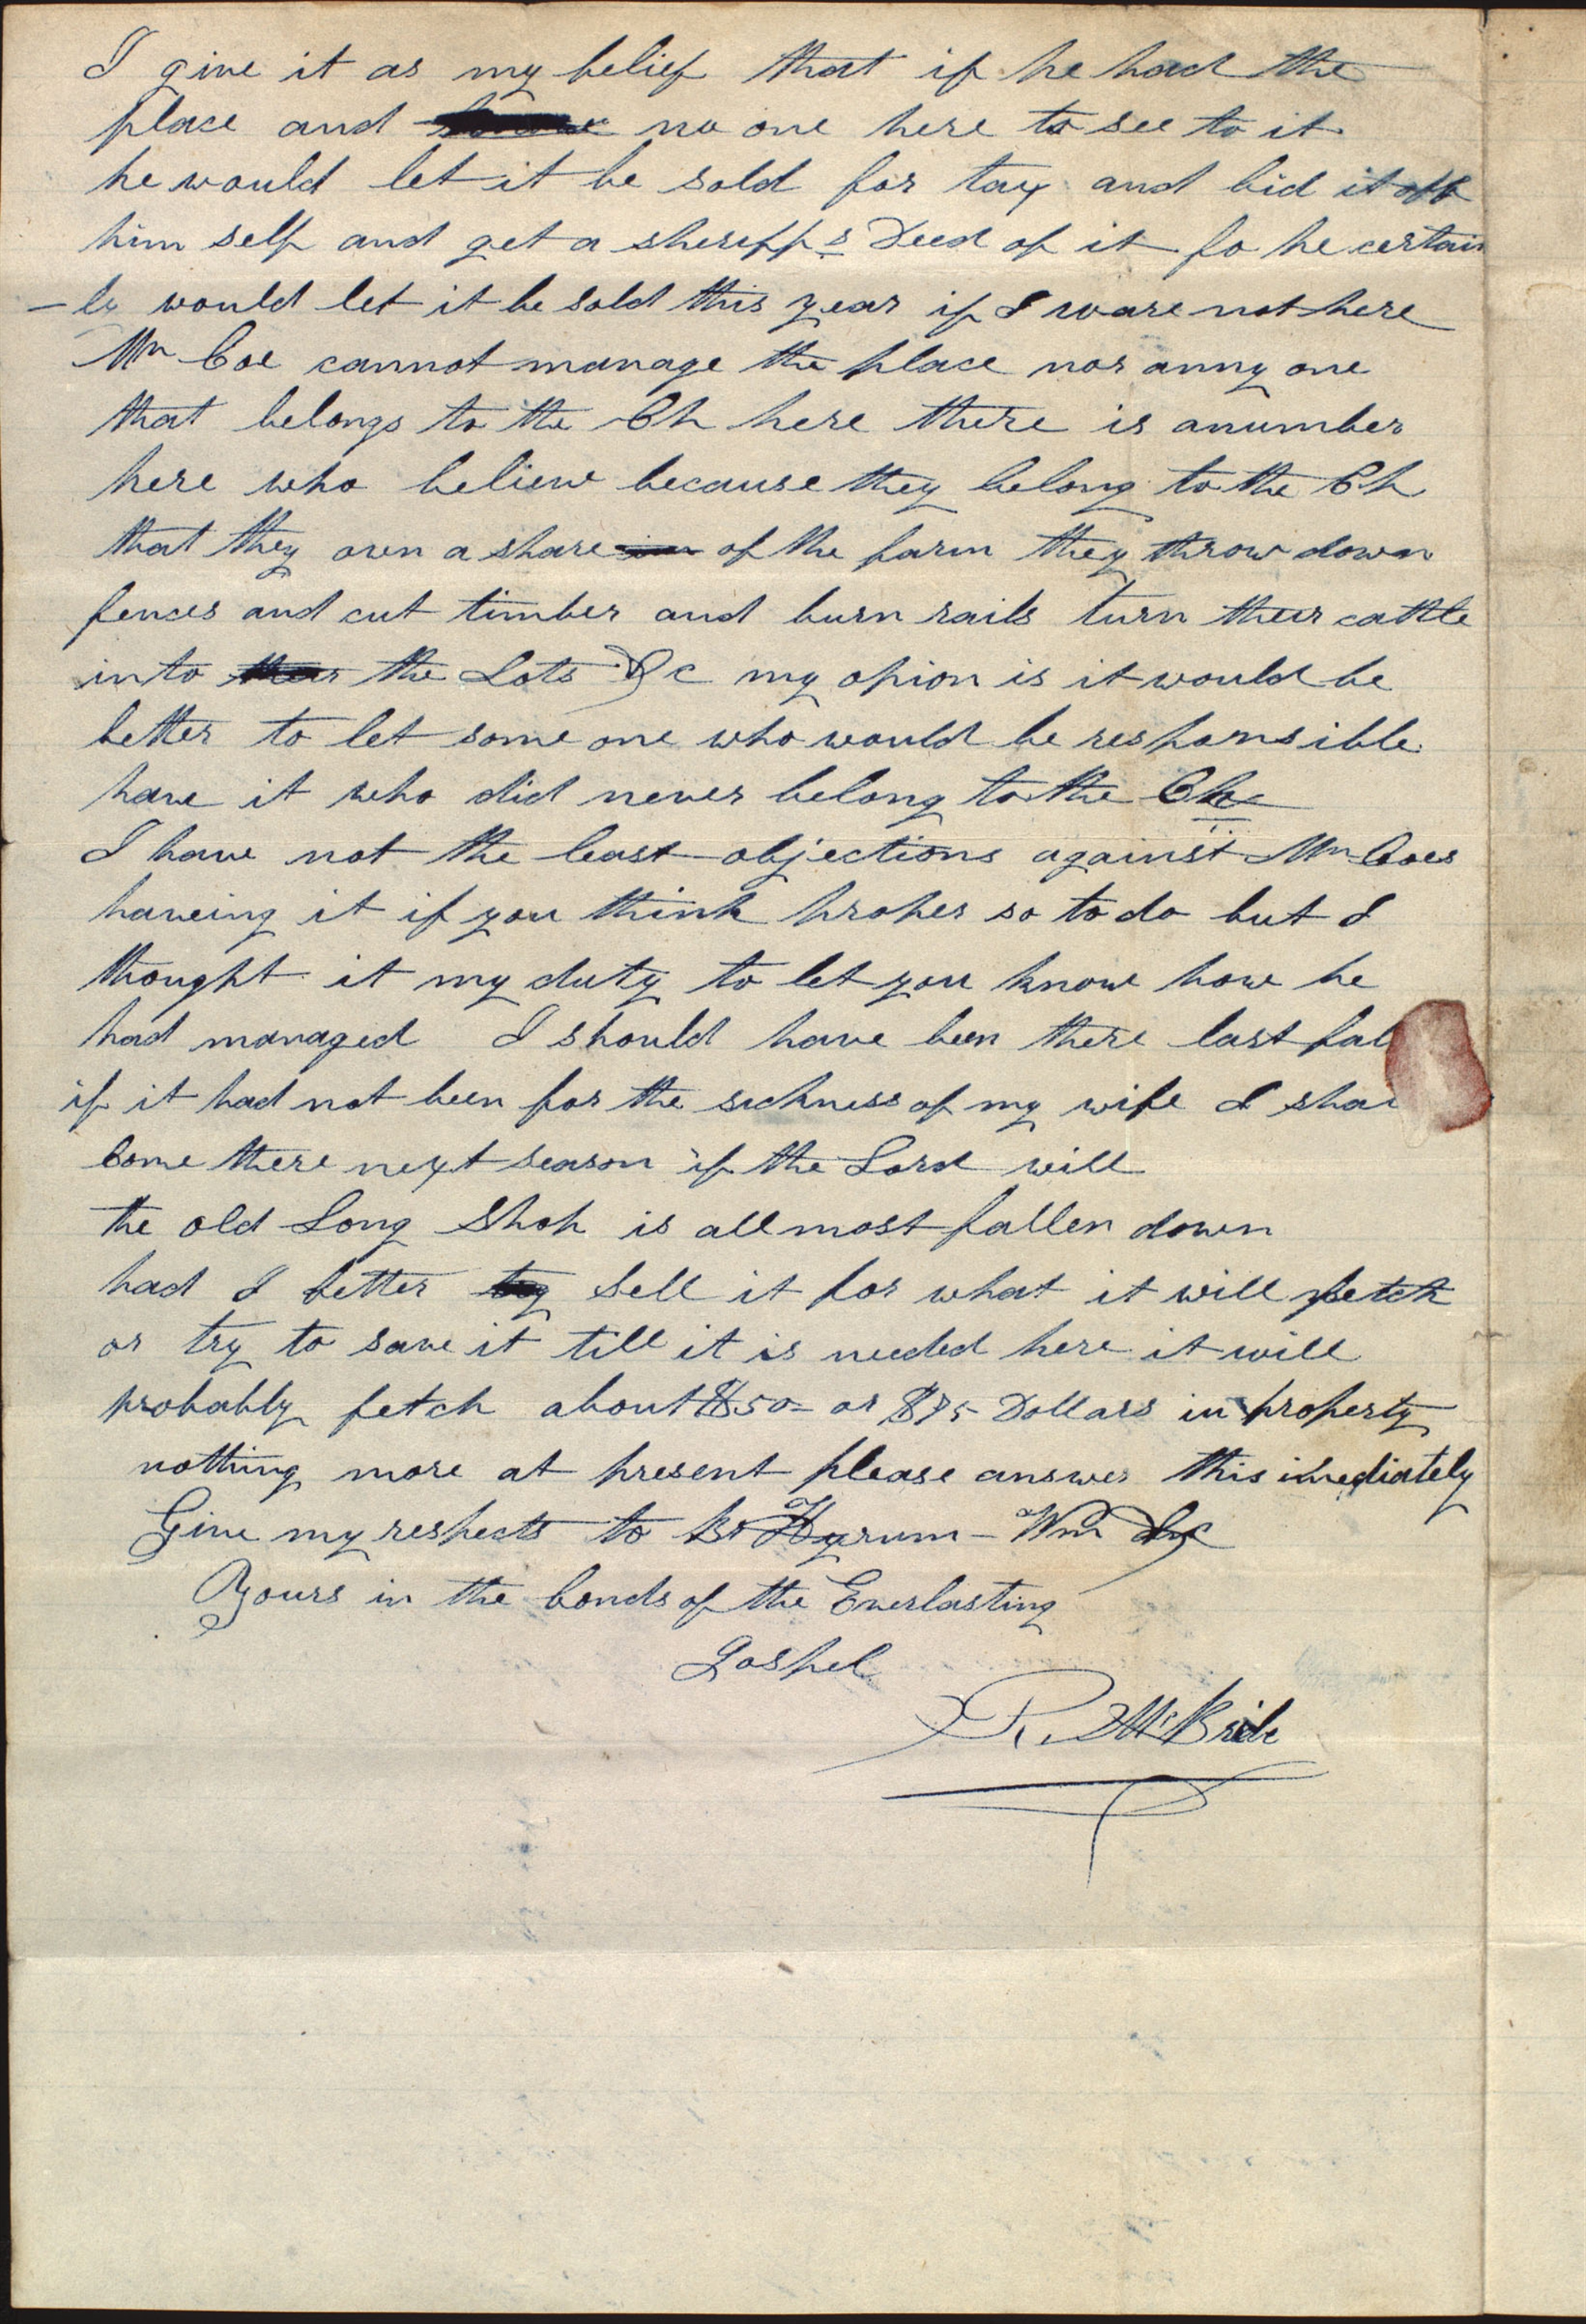 I give it as my belief that if he had the
place and no one here to see to it
he would let it be sold for tax and bid it off
him self and get a sheriffs Deed of it fo he certain
-ly would let it be sold this year if I ware not here
Mr Coe cannot manage the place nor anny one
that belongs to the Ch here there is anumber
here who believe because they belong to the Ch
that they own a share of the farm they throw down
fences and cut timber and burn rails turn their cattle
into the Lots &c my opion is it would be
better to let some one who would be responsible
have it who did never belong to the Ch
I have not the least objections against Mr Coes
haveing it if you think proper so to do but I
thought it my duty to let you know how he
had managed I should have been there last fal
if it had not been for the sickness of my wife I shal
come there next season if the Lord will
the old Long Shop is allmost fallen down
had I better sell it for what it will fetch
or try to save it till it is needed here it will
probably fetch about $50= or $75 Dollars in property
nothing more at present please answer this imediately
Give my respects to Br Hyrum - Wm &c
Yours in the bonds of the Everlasting
Gospel
R. McBride